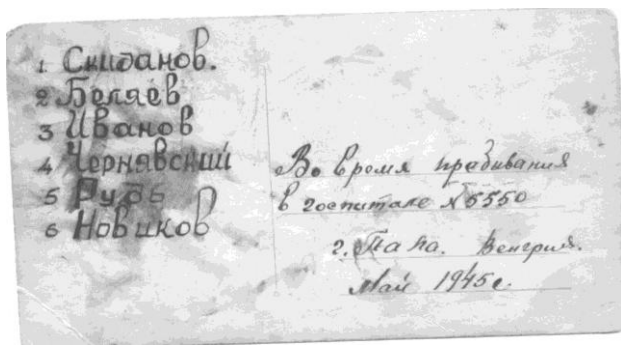 1 Скиданов.
2 Беляев
3 Иванов
4 Чернявский
5 Рудь
6 Новиков
Во время прабивания
в госпитале №5550
г. Папа. Венгрия.
Май 1945г.